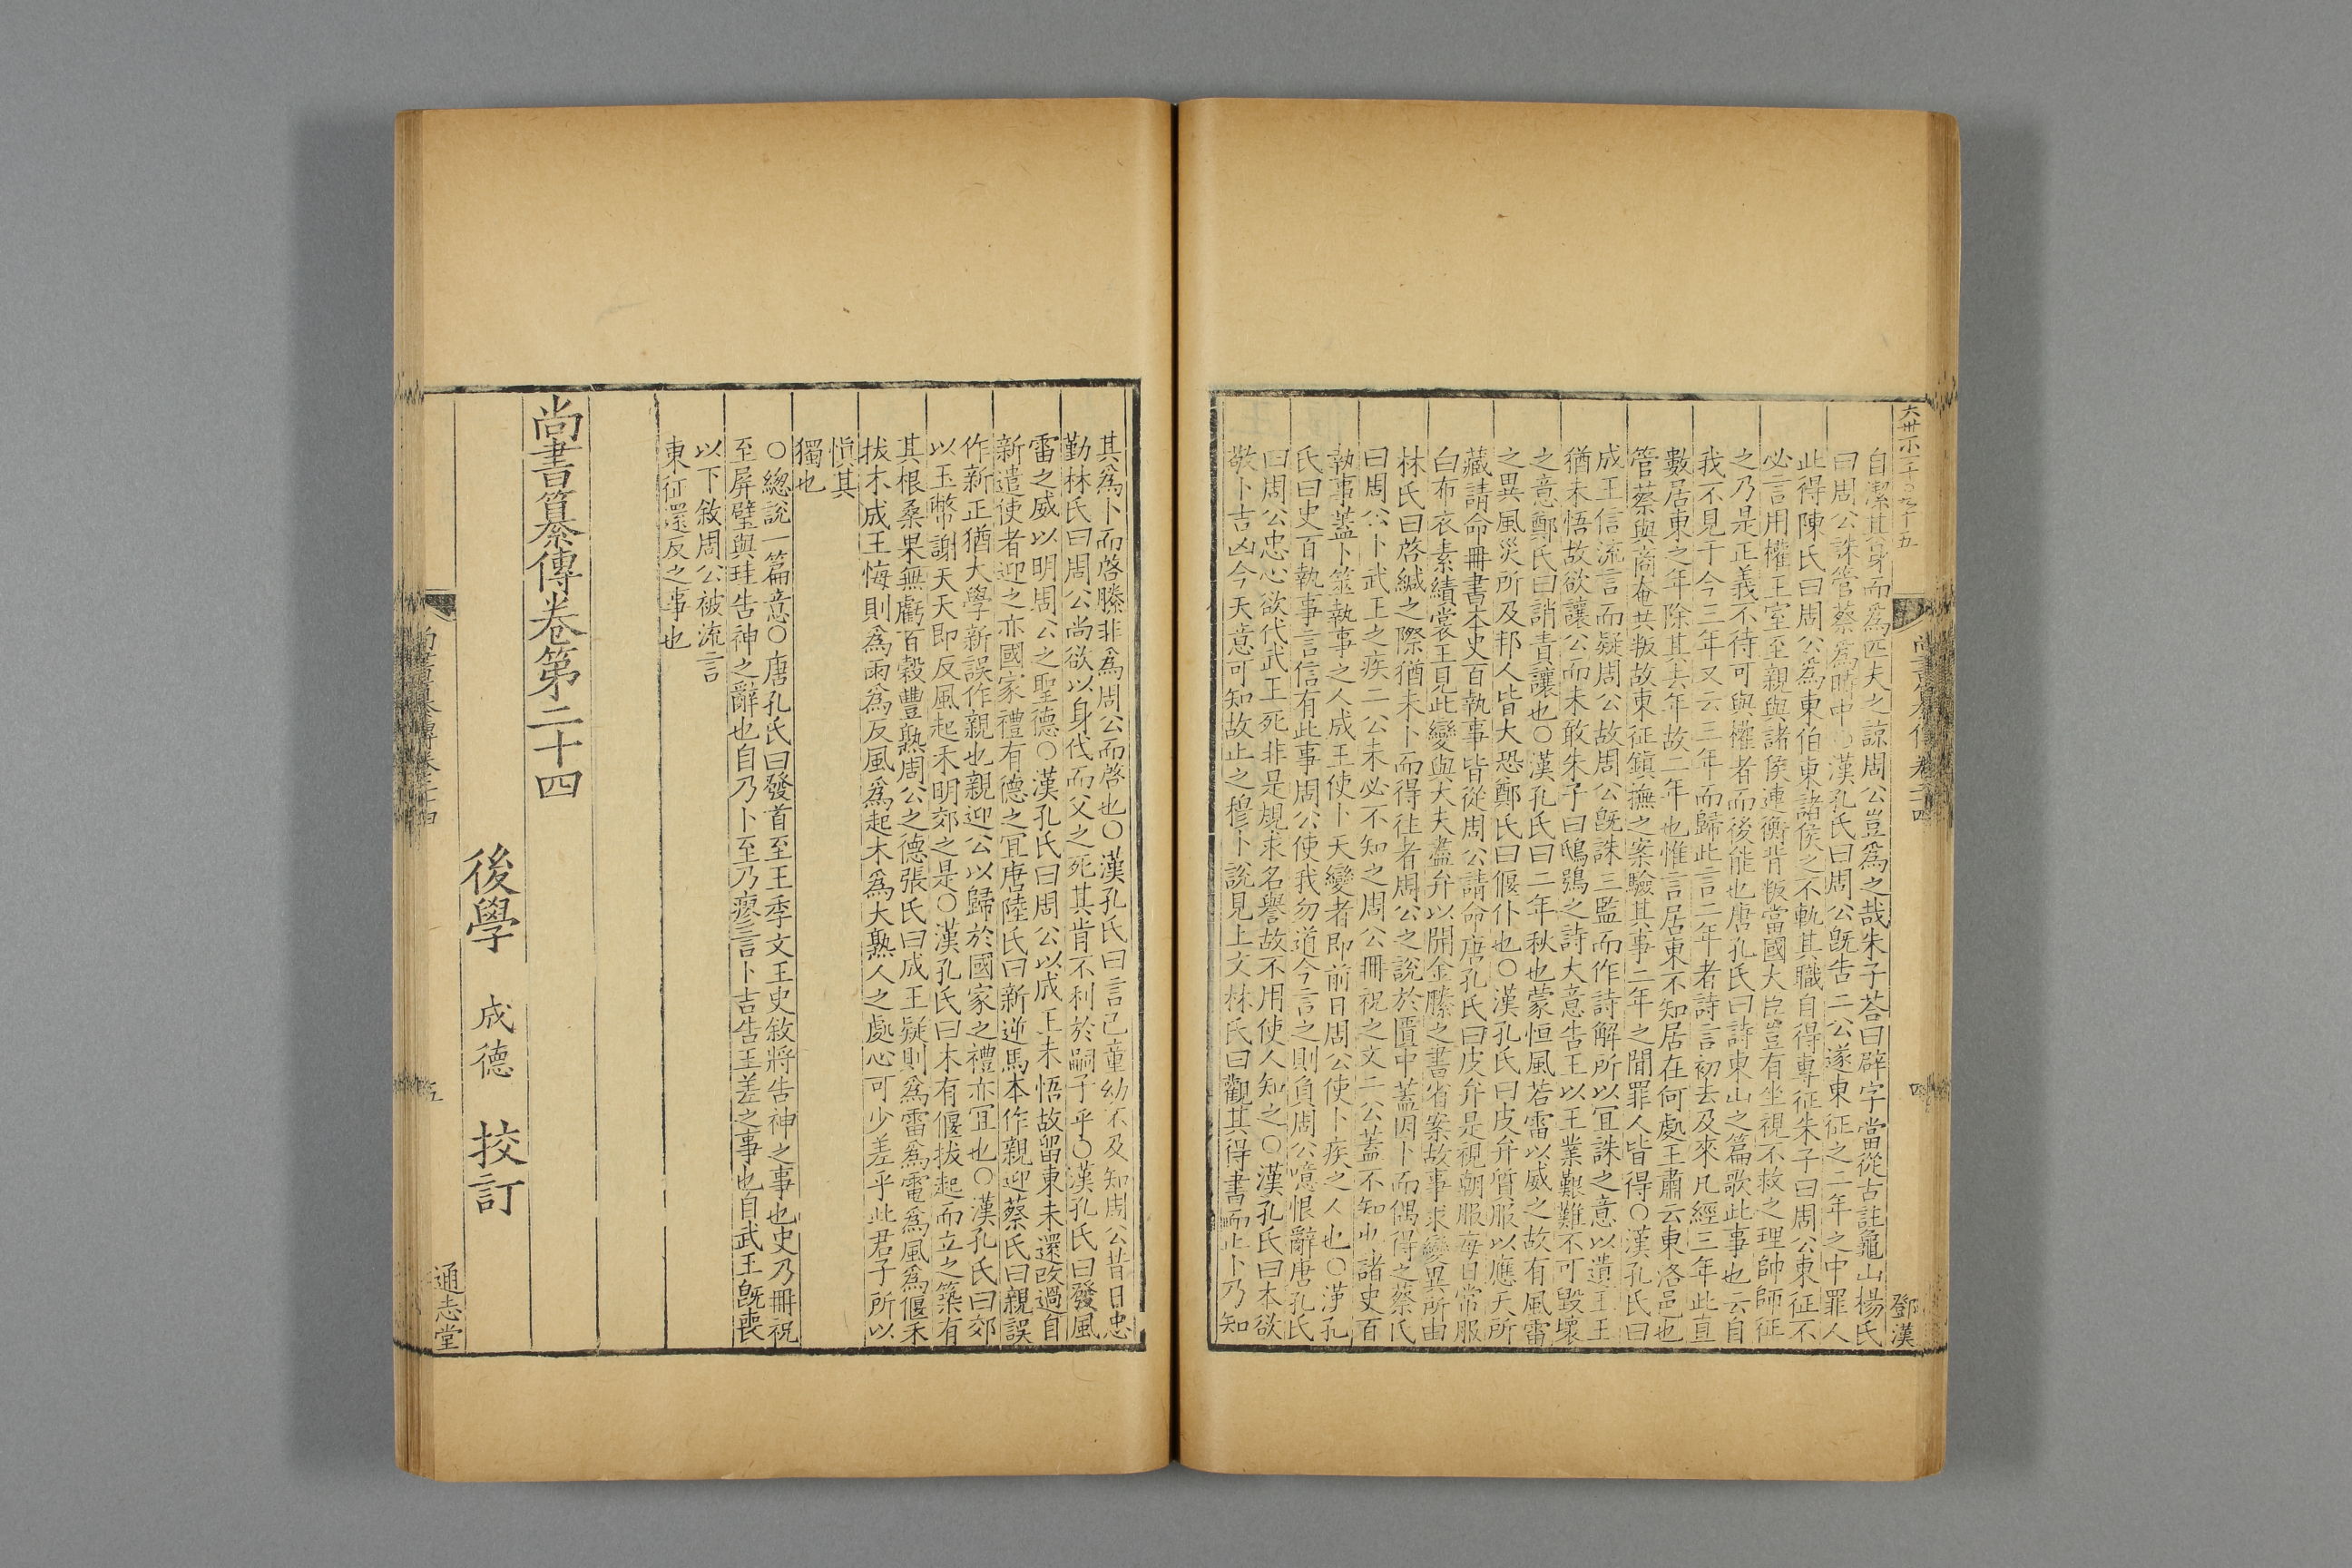 自潔其身而爲匹夫之諒周公豈爲之哉朱子荅曰辟字當從古註龜山楊氏
曰周公誅管蔡爲時中○漢孔氏曰周公旣告二公遂東征之二年之中罪人
此得陳氏曰周公爲東伯東諸侯之不軌其職自得專征朱子曰周公東征不
必言用權王室至親與諸侯連衡背叛當國大臣豈有坐視不救之理帥師征
之乃是正義不待可與權者而後能也唐孔氏曰詩東山之篇歌此事也云自
我不見于今三年又云三年而歸此言二年者詩言初去及來凡經三年此直
數居東之年除其去年故二年也惟言居東不知居在何處王肅云東洛邑也
管蔡與商奄共叛故東征鎭撫之案驗其事二年之間罪人皆得○漢孔氏曰
成王信流言而疑周公故周公旣誅三監而作詩解所以宜誅之意以遺王王
猶未悟故欲讓公而未敢朱子曰鴟鴞之詩大意告王以王業艱難不可毀壞
之意鄭氏曰誚責讓也○漢孔氏曰二年秋也蒙恒風若雷以威之故有風雷
之異風災所及邦人皆大恐鄭氏曰偃仆也○漢孔氏曰皮弁質服以應天所
藏請命冊書本史百執事皆從周公請命唐孔氏曰皮弁是視朝服每日常服
白布衣素績裳王見此變與大夫盡弁以開金縢之書省案故事求變異所由
林氏曰啓緘之際猶未卜而得往者周公之說於匱中蓋因卜而偶得之蔡氏
曰周公卜武王之疾二公未必不知之周公冊祝之文二公蓋不知也諸史百
執事蓋卜筮執事之人成王使卜天變者即前日周公使卜疾之人也○漢孔
氏曰史百執事言信有此事周公使我勿道今言之則負周公噫恨辭唐孔氏
曰周公忠心欲代武王死非是規求名譽故不用使人知之○漢孔氏曰本欲
敬卜吉凶今天意可知故止之穆卜說見上文林氏曰觀其得書而止卜乃知
鄧漢
其爲卜而啓縢非爲周公而啓也○漢孔氏曰言己童幼不及知周公昔日忠
勤林氏曰周公尚欲以身代而父之死其肯不利於嗣子乎○漢孔氏曰發風
雷之威以明周公之聖德○漢孔氏曰周公以成王未悟故留東未還改過自
新遣使者迎之亦國家禮有德之宜唐陸氏曰新逆馬本作親迎蔡氏曰親誤
作新正猶大學新誤作親也親迎公以歸於國家之禮亦宜也○漢孔氏曰郊
以玉幣謝天天即反風起禾明郊之是○漢孔氏曰木有偃拔起而立之築有
其根桑果無虧百穀豐熟周公之德張氏曰成王疑則爲雷爲電爲風爲偃禾
拔木成王悔則爲雨爲反風爲起木爲大熟人之處心可少差乎此君子所以
愼其
獨也
○總說一篇意○唐孔氏曰發首至王季文王史敘將告神之事也史乃冊祝
至屏璧與珪告神之辭也自乃卜至乃瘳言卜吉告王差之事也自武王旣喪
以下敘周公被流言
東征還反之事也
尚書纂傳卷第二十四
後學 成德 挍訂
尚書纂傳卷二十四
五
通志堂